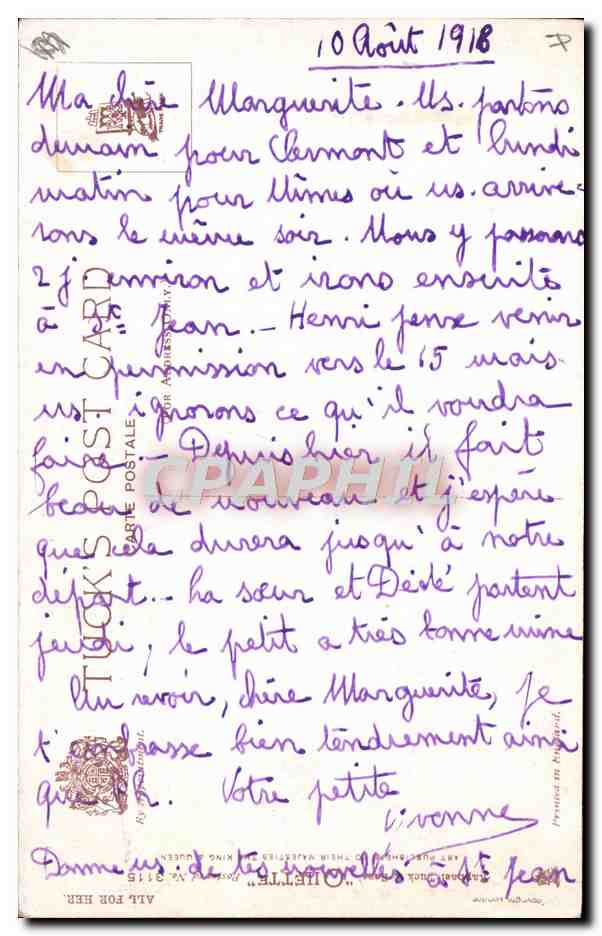 10 Août 1918
Ma chère Marguerite. Ns. partons
demain pour Clermont et lundi
matin pour Nîmes où ns. arrive-
rons le même soir. Nous y passons
2 j. environ et irons ensuite
à St Jean. - Henri pense venir
en permission vers le 15 mais
ns. ignorons ce qu'il voudra
faire. - Depuis hier il fait
beau de nouveau et j'espère
que cela durera jusqu'à notre
départ. - La sœur et Dédé partent
jeudi, le petit a très bonne mine
Au revoir, chère Marguerite, je
t'embrasse bien tendrement ainsi
que Votre petite
Yvonne
Donne ns. de tes nouvelles à St Jean
TUCK'S POST CARD
CARTE POSTALE
FOR ADDRESS ONLY
TRADE MARK
Printed in England.
Raphael Tuck & Sons' "OILETTE" Postcard No. 3115
ART PUBLISHERS TO THEIR MAJESTIES THE KING & QUEEN
ALL FOR HER.
CPAPHIL